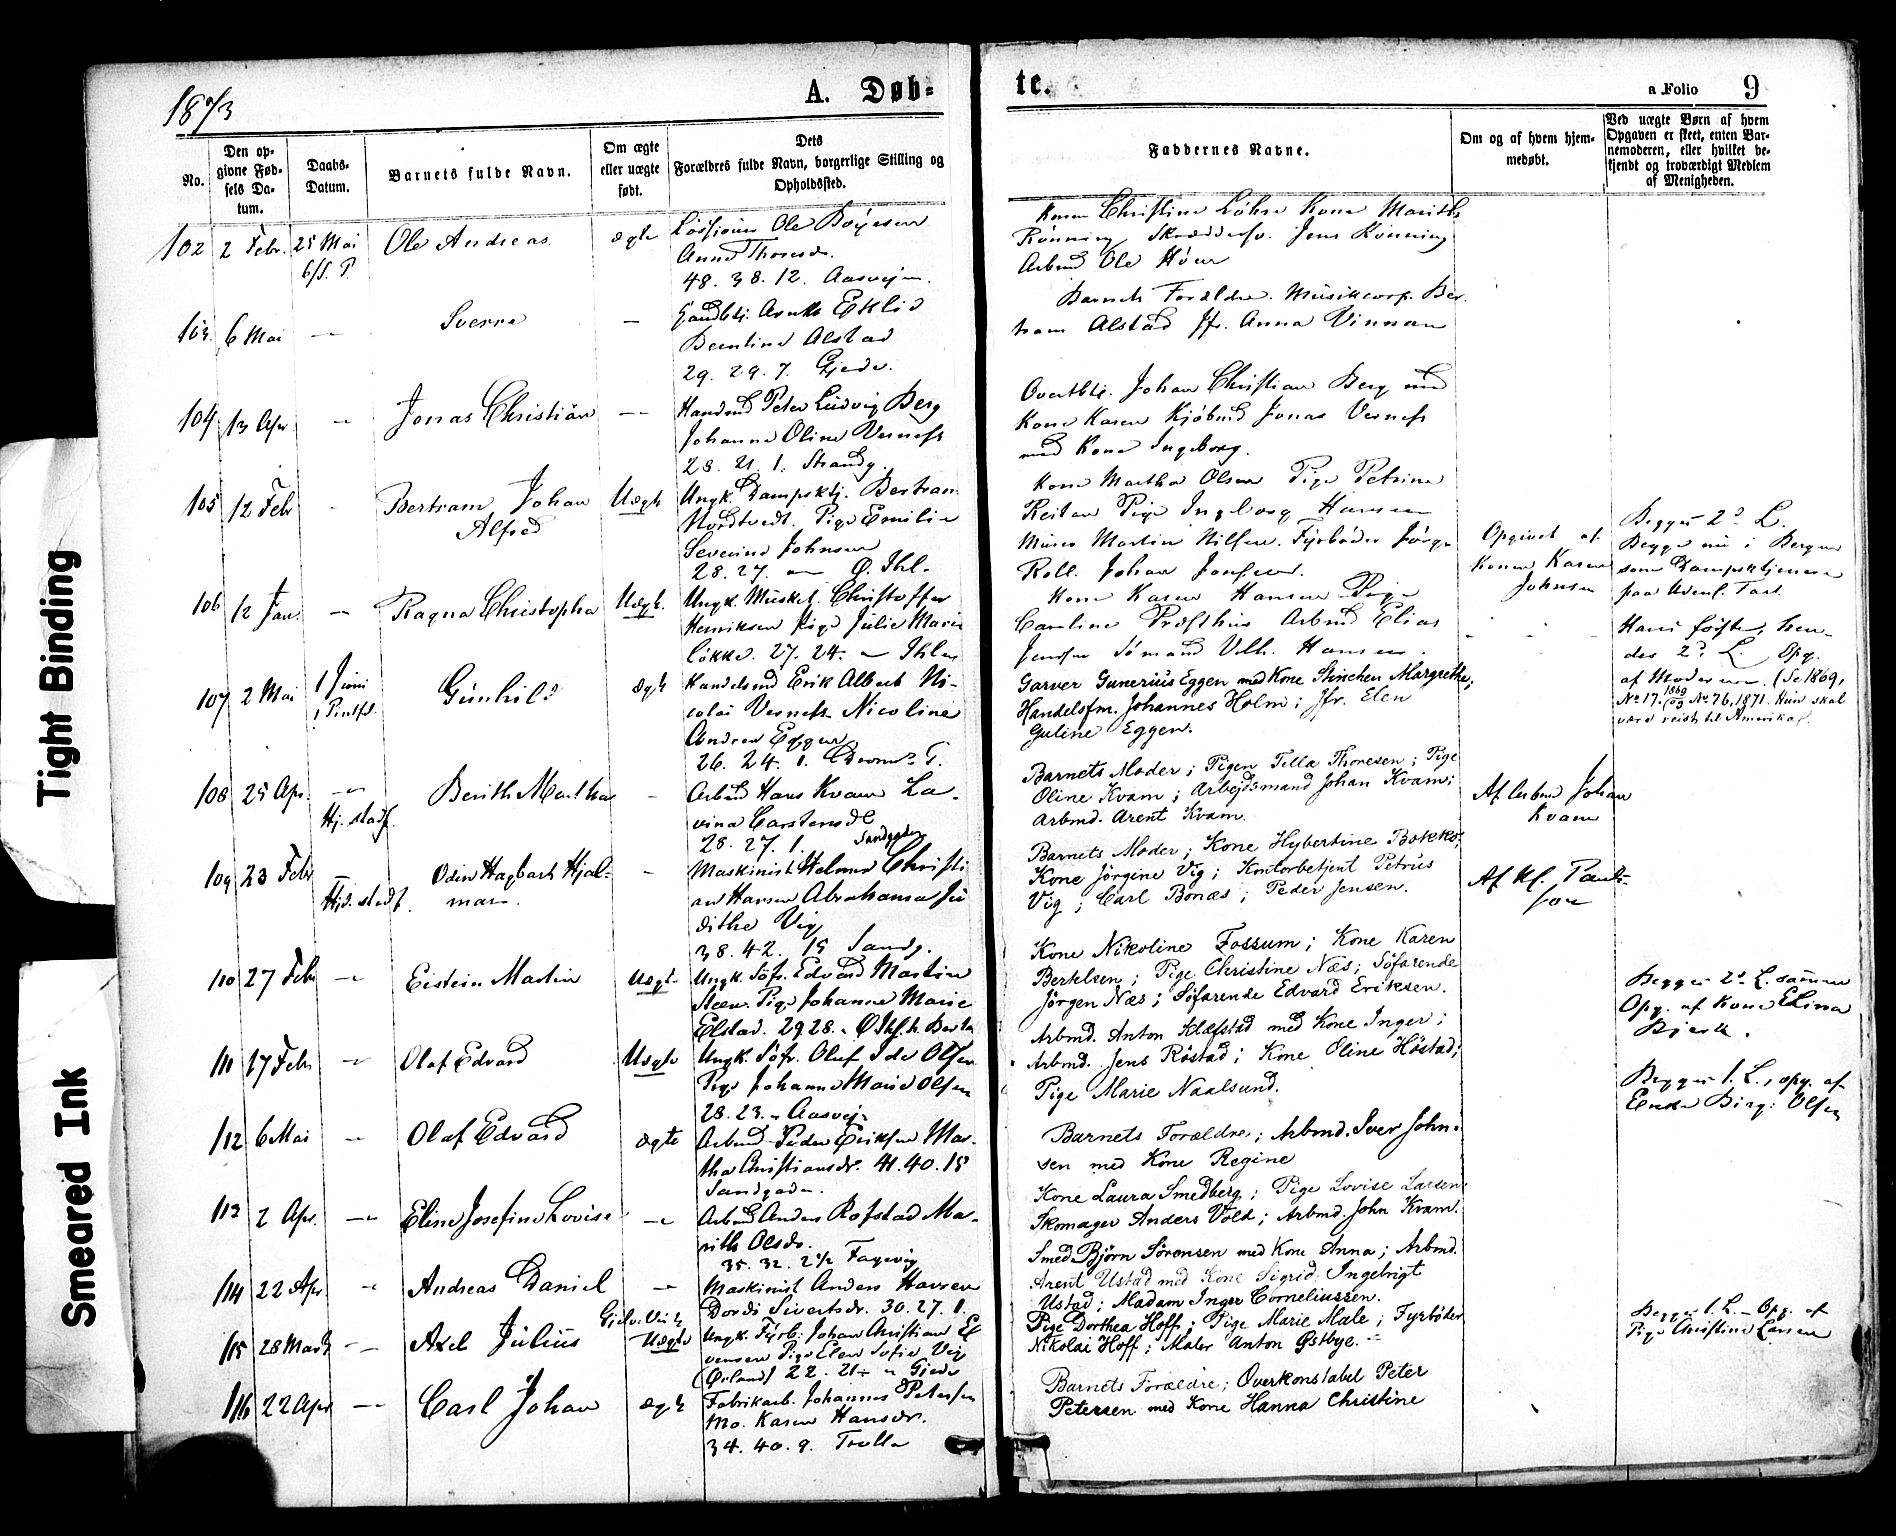 1873
A. Døb-
No.
Den op-
givne Fød-
sels Da-
tum.
Daabs-
Datum.
Barnets fulde Navn.
Om ægte
eller uægte
født.
Dets
Forældres fulde Navn, borgerlige Stilling og
Opholdssted.
102 2 Febr. 25 Mai Ole Andreas ægte
Ole Boÿesen
Anne Thoresdr.
48. 38. 12. Aasvejen
103. 6 Mai — Sverre —
Eklid
Berntine Alstad
29. 29. 7. Gjedv.
104 13 Apr — Jonas Christian —
Handmd Peter Ludvig Berg
Johanna Oline Vernes
28. 21. 1. Strandg.
105 12 Febr Bertram Johan Uægte
Alfred
Ungk. Dampsktj. Bertram
Nordtvedt. Pige Emilie
Severine Johnsen
28. 27. — Ø. Ihl.
106 12 Jan. — Ragna Christopha Uægt.
Ungk. Musket. Christoffer
Henriksen Pige Julie Marie
Løkke. 27. 24. — Ihlen
107 2 Mai 1 Juni Gunhild ægte
1 Pintsd.
Handelsmd Erik Albert Ni-
colai Vernes. Nicoline
Andrea Eggen
26. 24. 1.
108 25 Apr. — Berith Martha —
Hj. stadf.
Arbmd Hans Kvam La-
vina Carstensdt
28. 27. 1. Sandgaden
109 23 Febr Odin Hagbart Hjal- —
Hjd. stadf. mar
Maskinist Helmer Christi-
an Hansen Abrahamsen Ju-
dithe Vig
38. 42. 15 Sandg.
110 27 Febr — Eistein Martin Uægt.
Ungk. Søfr. Edvard Martin
Steen. Pige Johanna Marie
Elstad. 29 28.
111 17 Febr — Olaf Edvard Uægte
Ungk. Søfr. Oluf Olsen
Pige Johanna Marie Olsen
28. 23. Aasvej.
112 6 Mai — Olaf Edvard ægte
Arbmd Peder Eriksen Mar-
tha Christiansdr. 41. 40. 15
Sandgaden.
113 2 Apr. — Eline Josefine Lovise —
Arbmd Anders Rofstad Ma-
rith Olsdr.
35. 32. 2½ Fagervig
114 22 Apr — Andreas Daniel —
Maskinist Anders Hansen
Dordi Sivertsdr. 30. 27. 1.
115 28 Marts — Axel Julius Uægte
Ungk. Fyrb. Johan Christian
Pige Elen Sofie Vig
(Ørland) 22. 21 Gjedv
116 22 Apr — Carl Johan ægte
Fabrikarb. Johannes Petersen
Mo. Karen Hansdr.
34. 40. 9. Trolla
te.
a Folio 9
Faddernes Navne.
Om og af hvem hjem-
medøbt.
Ved uægte Børn af hvem
Opgaven er skeet, enten Bar-
nemoderen, eller hvilket be-
kjendt og troværdigt Medlem
af Menigheden.
Kone Christine Løhre Kone Marith
Rønning Skræddersv. Jens Rønning
Arbmd Ole Høen
Barnets Forældre. Musikcorp. Ber-
tram Alstad Jfr. Anna Vinnan
Johan Christian Berg med
Kone Karen Kjøbmd Jonas Vernes
med Kone Ingeborg.
Kone Martha Olsen Pige Petrine
Reitan Pige Ingeborg Hansen
Murer Martin Nilsen. Fyrbøder Jørgen
Roll. Johan Jonsen.
Kone Karen Hansen Pige
Caroline Præsthus Arbmd Elias
Jensen Sømand Vilh. Hansen.
Garver Gunerius Eggen med Kone Stinchen Margrethe;
Handelsfm. Johannes Holm; Jfr. Elen
Guline Eggen.
Barnets Moder; Pigen Tella Thoresen; Pige
Oline Kvam; Arbejdsmand Johan Kvam;
Arbmd. Arent Kvam.
Barnets Moder; Kone Hybertine Bakke;
Kone Jørgine Vig; Kontorbetjent Petrus
Vig; Carl Bonæs; Peder Jensen.
Kone Nikoline Fossum; Kone Karen
Berklsen; Pige Christine Næs; Søfarende
Jörgen Næs; Søfarende Edvard Eriksen.
Arbmd. Anton Klæfstad med Kone Inger;
Arbmd. Jens Röstad; Kone Oline Höstad;
Pige Marie Naalsund.
Barnets Forældre; Arbmd. Sver John-
sen med Kone Regine
Kone Laura Smedberg; Pige Lovise Larsen
Skomager Anders Vold; Arbmd. John Kvam.
Smed Björn Sörensen med Kone Anna; Arbmd.
Arent Ustad med Kone Sigrid; Ingebrigt
Ustad; Madam Inger Corneliussen.
Pige Dorthea Hoff; Pige Marie Male; Fyrböder
Nikolai Hoff; Maler Anton Østbye.
Barnets Forældre; Overkonstabel Peter
Petersen med Kone Hanna Christine
Opgivet af
Konen Karen
Johnsen
Af Arbmd Johan
Kvam
Begges 2d L.
Begge nu i Bergen
som Dampsktjenere
paa Udenl. Fart.
Hans første, hen-
des 2d L. Opg.
af Moderen. (Se 1869,
No 17. No 76, 1871. Hun skal
være reist til Amerika).
Begges 2d L. sammen
Opg. af Kone Elina
Bjerk.
Begges 1. L., opg. af
Enke Birg. Olsen
Begges 1. L. — Opg. af
Pige Christine Larsen
Tight Binding
Smeared Ink